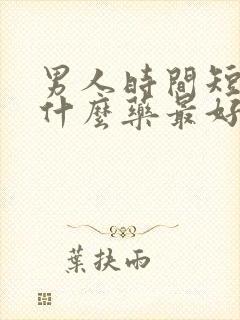 男人時間短
什麼藥最好
葉扶雨